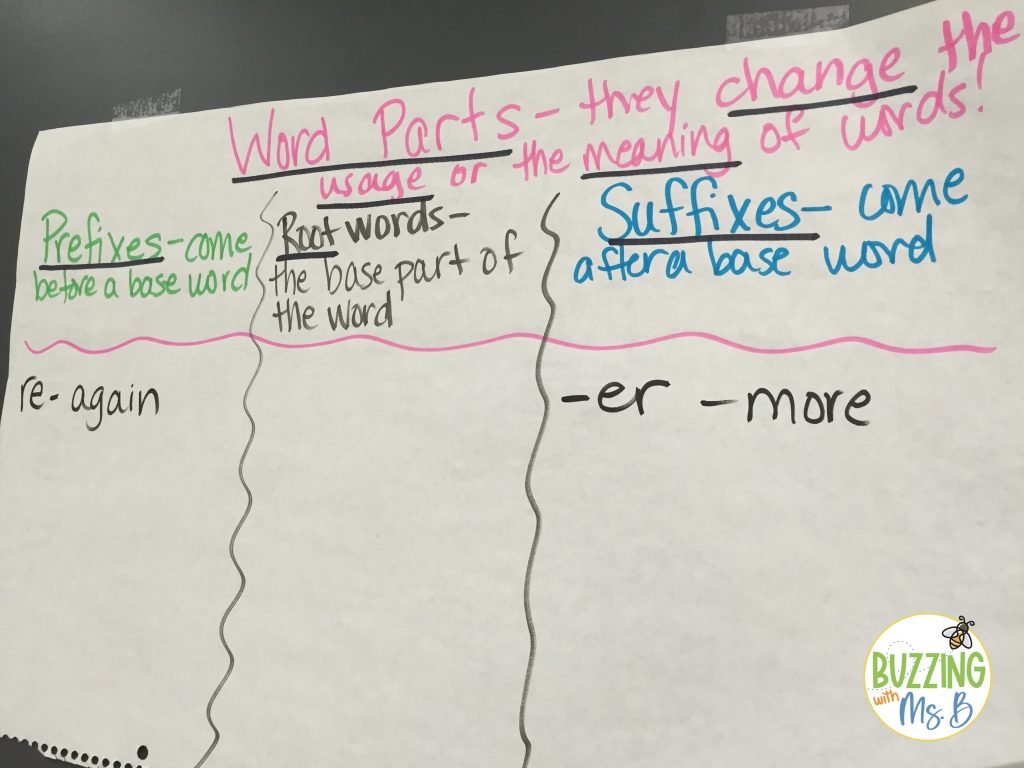 Word Parts - they change the
usage or the meaning of words!
Prefixes - come
before a base word
Root words -
the base part of
the word
Suffixes - come
after a base word
re- again
-er - more
BUZZING
with
Ms. B